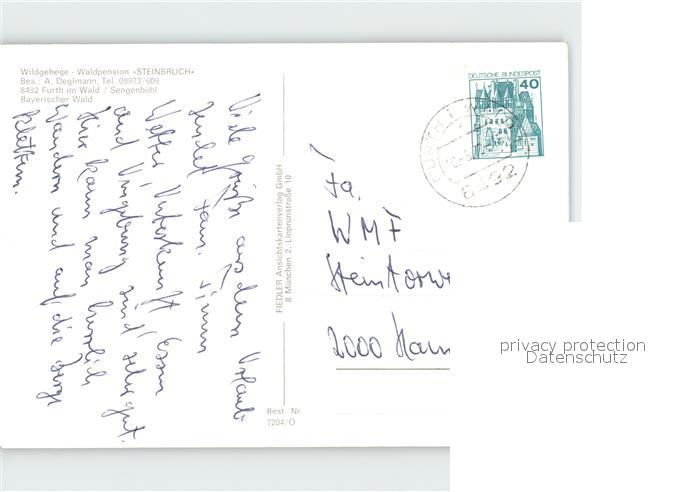 Wildgehege - Waldpension »STEINBRUCH«
Bes.: A. Deglmann, Tel. 09973/609
8492 Furth im Wald / Sengenbühl
Bayerischer Wald
Viele Grüße aus dem Urlaub
sendet Fam.
Wetter, Unterkunft, Essen
und Umgebung sind sehr gut.
Hier kann man herrlich
wandern und auf die Berge
klettern.
FIEDLER Ansichtskartenverlag GmbH
8 München 2, Linprunstraße 10
Best. Nr.
7204/O
DEUTSCHE BUNDESPOST
40
8492
Fa.
WMF
Steintorw
2000 Ham
privacy protection
Datenschutz